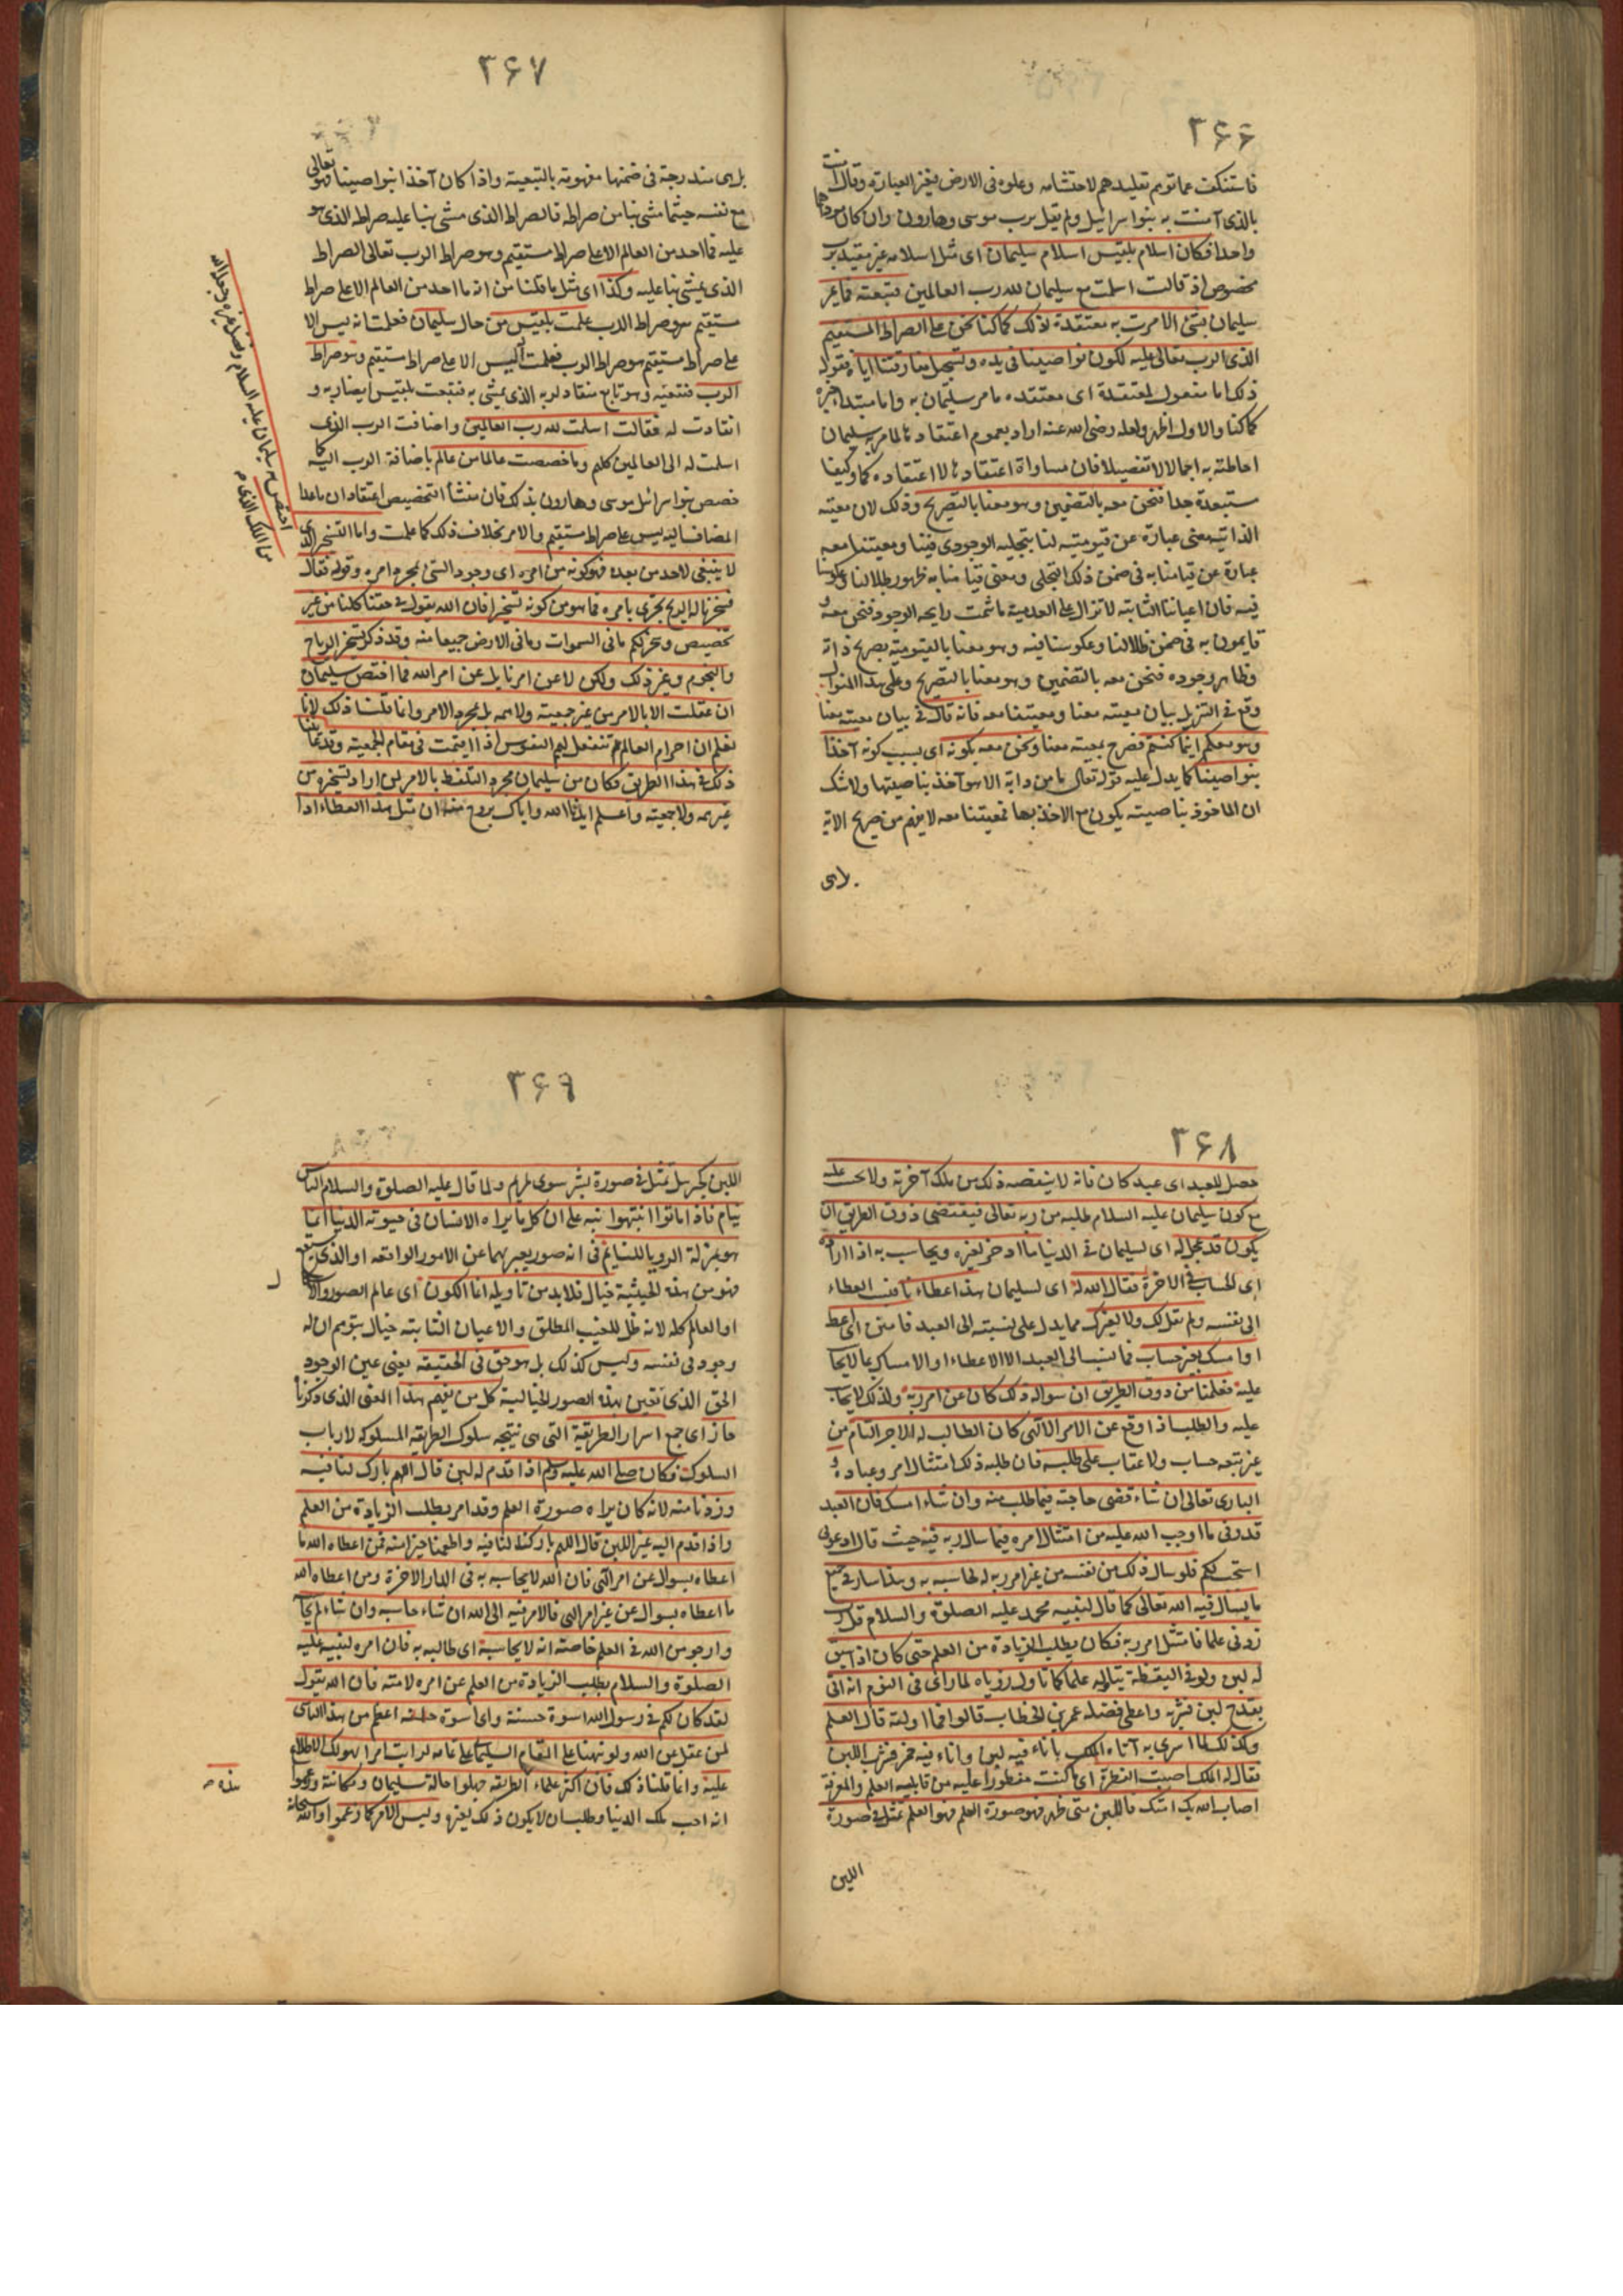 ٣۶۶
فاستنكفت عما توهم تقليدهم لاحتشامه وعلوه فى الارض بغير العبارة وقال آمنت
بالذى آمنت به بنو اسرائيل ولم تقل برب موسى وهارون وان كان
واحدا فكان اسلام بلقيس اسلام سليمان اى مثل اسلامه غير مقيد برب
مخصوص اذ قالت اسلمت مع سليمان لله رب العالمين فتبعته فما يمر
سليمان بشئ الا مرت به معتقدة ذلك كما كنا نحن على الصراط المستقيم
الذى الرب تعالى عليه لكون نواصينا فى يده وتستحيل مفارقتنا اياه فقوله
ذلك اما مفعول لمعتقدة اى معتقده ما مر سليمان به واما مبتدأ خبره
كما كنا والاول اظهر ولعله رضى الله عنه اراد بعموم اعتقادها لما مر به سليمان
احاطته به اجمالا لا تفصيلا فان مساواة اعتقادها لاعتقاده كما وكيفا
مستبعدة جدا فنحن معه بالتضمين وهو معنا بالتصريح وذلك لان معيته
الذاتية معنى عبارة عن قيوميته لنا بتجليه الوجودى فينا ومعيتنا معه
عبارة عن قيامنا به فى ضمن ذلك التجلى ومعنى قيامنا به ظهور ظلالنا وعكوسنا
فيه فان اعياننا الثابتة لا تزال على العدمية ما شمت رايحة الوجود فنحن معه
قايمون به فى ضمن ظلالنا وعكوسنا فيه وهو معنا بالقيومية بصريح ذاته
وظاهر وجوده فنحن معه بالتضمين وهو معنا بالتصريح وعلى هذا المنوال
وقع فى التنزيل بيان معيته معنا ومعيتنا معه فانه قال فى بيان معيته معنا
وهو معكم اينما كنتم فصرح بمعيته معنا ونحن معه بكونه اى بسبب كونه آخذا
بنواصينا كما يدل عليه قوله تعالى ما من دابة الا هو آخذ بناصيتها ولا شك
ان الماخوذ بناصيته يكون مع الاخذ بها فمعيتنا معه لا يفهم من صريح الاية
بل هى
٣۶٧
بل هى مندرجة فى ضمنها مفهومة بالتبعية واذا كان آخذا بنواصينا فهو تعالى
مع نفسه حيثما مشى بنا من صراطه فالصراط الذى مشى بنا عليه صراطه الذى هو
عليه فما احد من العالم الا على صراط مستقيم وهو صراط الرب تعالى الصراط
الذى يمشى بنا عليه وكذا اى مثل ما قلنا من انه ما احد من العالم الا على صراط
مستقيم هو صراط الرب علمت بلقيس من حال سليمان فعلمت انه ليس الا
على صراط مستقيم هو صراط الرب فعلمت انه ليس الا على صراط مستقيم وهو صراط
الرب فتتبعه وهو تابع منقاد لربه الذى يمشى به فتبعت بلقيس ايضا ربه و
انقادت له فقالت اسلمت لله رب العالمين واضافت الرب الذى
اسلمت له الى العالمين كلهم وما خصصت عالما من عالم باضافة الرب اليه كما
خصص بنو اسرائيل موسى وهارون بذلك فان منشأ التخصيص اعتقاد ان ما عدا
المضاف اليه ليس على صراط مستقيم والامر بخلاف ذلك كما علمت واما التسخير الذى
لا ينبغى لاحد من بعده فهو كونه من امره اى وجود الشئ بمجرد امره وقوله فقال
فسخرنا له الريح تجرى بامره فما هو من كونه تسخيرا فان الله يقول فى حقنا كلنا من غير
تخصيص وسخر لكم ما فى السموات وما فى الارض جميعا منه وقد ذكر تسخير الرياح
والنجوم وغير ذلك ولكن لا عن امرنا بل عن امر الله فما اختص سليمان
ان عقلت الا بالامر من غير جمعيته ولا همه بل بمجرد الامر وانما قلنا ذلك لانا
نعلم ان اجرام العالم تنفعل لهمم النفوس اذا اقيمت فى مقام الجمعية وقد عاينا
ذلك فى هذا الطريق فكان من سليمان مجرد التلفظ بالامر لمن اراد تسخيره من
غير همه ولا جمعيته واعلم ايدنا الله واياك بروح منه ان مثل هذا العطاء اذا
اختص به سليمان عليه السلام وفضل غيره وجعله الله
من الملك الذى
٣۶٨
حصل للعبد اى عبد كان فانه لا ينقصه ذلك من ملك آخرته ولا يحسب عليه
مع كون سليمان عليه السلام طلبه من ربه تعالى فيقتضى ذوق الطريق ان
يكون قد عجل له اى لسليمان فى الدنيا ما ادخر لغيره ويحاسب به اذا اراده
اى الحساب فى الاخرة فقال الله له اى لسليمان هذا عطاءنا فنسب العطاء
الى نفسه ولم يقل لك ولا لغيرك مما يدل على نسبته الى العبد فامنن اى اعط
او امسك بغير حساب فما نسب الى العبد الا الاعطاء او الامساك بما لا يحاسب
عليه فعلمنا من ذوق الطريق ان سواله ذلك كان عن امر ربه ولذلك لا يحاسب
عليه والطلب اذا وقع عن الامر الالهى كان الطالب له الاجر التام من
غير تبعه حساب ولا عتاب على طلبه فان طلبه ذلك امتثال امر وعبادة و
البارى تعالى ان شاء قضى حاجته فيما طلب منه وان شاء امسك فان العبد
قد وفى ما اوجب الله عليه من امتثال امره فيما سال ربه فيه حيث قال ادعونى
استجب لكم فلو سال ذلك من نفسه من غير امر ربه له لحاسبه به وهذا سار فى جميع
ما يسال فيه الله تعالى كما قال لنبيه محمد عليه الصلوة والسلام قل رب
زدنى علما فامتثل امر ربه فكان يطلب الزيادة من العلم حتى كان اذا سيق
له لبن ولو فى اليقظة يتاوله علما كما تاول روياه لما راى فى النوم انه اتى
بقدح لبن فشربه واعطى فضله عمر بن الخطاب قالوا فما اولته قال العلم
وكذلك لما اسرى به آتاه الملك باناء فيه لبن واناء فيه خمر فشرب اللبن
فقال له الملك اصبت الفطرة اى ما كنت مفطورا عليه من قابلية العلم والمعرفة
اصاب الله بك امتك فاللبن متى ظهر فهو صورة العلم فهو العلم تمثل فى صورة
اللبن
٣۶٩
اللبن كجبريل تمثل فى صورة بشر سوى لمريم ولما قال عليه الصلوة والسلام الناس
نيام فاذا ماتوا انتبهوا نبه على ان كل ما يراه الانسان فى حيوته الدنيا انما
هو بمنزلة الرويا للنايم فى انه صور يعبر بهما عن الامور الواقعه او الذى
فهو من هذه الحيثية خيال فلا بد من تاويله انما الكون اى عالم الصور
او العالم كله لانه ظل للغيب المطلق والاعيان الثابته خيال يتوهم ان له
وجود فى نفسه وليس كذلك بل هو حق فى الحقيقة يعنى عين الوجود
الحق الذى تعين بهذه الصور الخيالية كل من يفهم هذا المعنى الذى ذكرنا
حاز اى جمع اسرار الطريقة التى هى نتيجه سلوك الطريقه المسلوكه لارباب
السلوك فكان صلى الله عليه وسلم اذا قدم له لبن قال اللهم بارك لنا فيه
وزدنا منه لانه كان يراه صورة العلم وقد امر بطلب الزيادة من العلم
واذا قدم اليه غير اللبن قال اللهم بارك لنا فيه واطعمنا خيرا منه فمن اعطاه الله ما
اعطاه بسوال عن امر الهى فان الله لا يحاسبه به فى الدار الاخرة ومن اعطاه الله
ما اعطاه بسوال عن غير امر الهى فالامر فيه الى الله ان شاء حاسبه وان شاء لم يحاسبه
وارجو من الله فى العلم خاصته انه لا يحاسبه اى طالبه به فان امره لنبيه عليه
الصلوة والسلام بطلب الزيادة من العلم عن امره لامته فان الله يقول
لقد كان لكم فى رسول الله اسوة حسنة واى اسوة حسنه اعظم من هذا التاسى
لمن عقل عن الله ولو نبهنا على المقام السليمانى على تمامه لرايت امرا يهولك الاطلاع
عليه وانما قلنا ذلك فان اكثر علماء الطريقه جهلوا حالة سليمان ومكانته وزعموا
انه احب ملك الدنيا وطلب ان لا يكون ذلك لغيره وليس الامر كما زعموا والله سبحانه
هذه